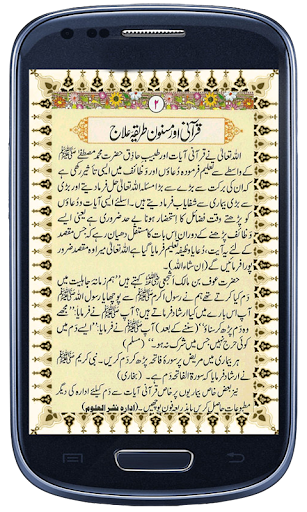 ۲
قرآنی اور مسنون طریقہ علاج
اللہ تعالیٰ نے قرآنی آیات اور طبیب حاذق حضرت محمد مصطفےٰ ﷺ
کے واسطے سے تعلیم فرمودہ دُعاؤں اور وظائف میں ایسی تاثیر رکھی ہے
کہ ان کی برکت سے بڑے سے بڑا مسئلہ اللہ تعالیٰ حل فرما دیتے اور بڑی
سے بڑی بیماری سے شفایاب فرماتے ہیں۔ سلئے ایسی آیات و دُعاؤں کو
پڑھتے وقت فضائل کا استحضار ہونا بے حد ضروری ہے یعنی ایسے
وظائف کو پڑھنے کے دوران اس بات کا مستقل دھیان رہے کہ جس مقصد
کے لئے یہ آیت، دُعا یا وظیفہ تعلیم فرمایا گیا ہے اللہ تعالیٰ میرا وہ مقصد ضرور
پورا فرمائیں گے (ان شاء اللہ)۔
حضرت عوف بن مالک رضی اللہ عنہ کہتے ہیں "ہم زمانہ جاہلیت میں
دَم کیا کرتے تھے ہم نے رسول اکرم ﷺ سے پوچھا یا رسول اللہ ﷺ
آپ اس بارے میں کیا ارشاد فرماتے ہیں؟ آپ ﷺ نے فرمایا "مجھے
وہ دَم پڑھ کر سناؤ" (سننے کے بعد) آپ ﷺ نے فرمایا "ایسے دَم میں
کوئی حرج نہیں جس میں شرک نہ ہو۔" (مسلم)
ہر بیماری میں مریض پر سورۃ فاتحہ پڑھ کر دَم کریں۔ نبی کریم ﷺ
نے ارشاد فرمایا کہ سورۃ الفاتحہ دَم ہے۔ (بخاری)
نیز بعض خاص بیماریوں پر خاص قرآنی آیات سے دَم کیلئے ادارہ کی دیگر
مطبوعات حاصل کریں یا بذریعہ فون پوچھیں۔ (ادارہ نشر العلوم)